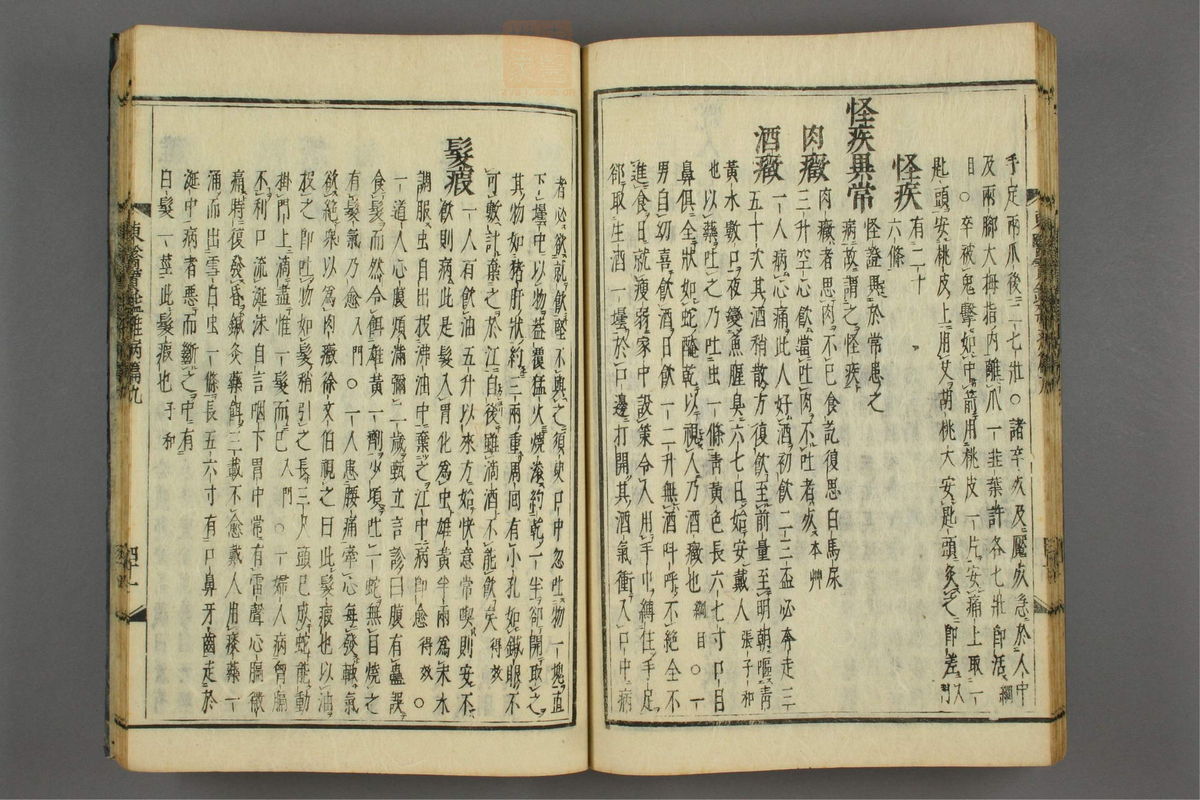 手足兩爪後二七壯○諸卒疾及魘疾急於人中
及兩脚大拇指内離爪一韭葉許各七壯即活綱
目○卒被鬼擊如中箭用桃皮一片安痛上取一
匙頭安桃皮上用艾胡桃大安匙頭灸之即差入門
怪疾有二十六條
怪疾異常怪證異於常患之病故謂之怪疾
肉癥肉癥者思肉不已食訖復思白馬尿
三升空心飲當吐肉不吐者死本艸
酒癥一人病心痛此人好酒初飲二三盃必奔走三
五十次其酒稍散方復飲至前量至明朝嘔靑
黃水數口夜變魚腥臭六七日始安戴人張子和
也以藥吐之乃吐虫一條靑黃色長六七寸口目
鼻俱全狀如蛇醃乾以視人乃酒癥也綱目○一
男自幼喜飲酒日飲一二升無酒呌呼不絕全不
進食日就瘦弱家中設策令人用手巾縛住手足
郤取生酒一壜於口邊打開其酒氣衝入口中病
者必欲就飲堅不與之須臾口中忽吐物一塊直
下壜中以物蓋覆猛火燒滚約乾一半郤開取之
其物如猪肝狀約三兩重周回有小孔如鍼眼不
可數計棄之於江自後雖滴酒不能飲矣得效
髮瘕一人有飲油五升以來方始快意常喫則安不
飲則病此是髮入胃化爲虫雄黃半兩爲末水
調服虫自出投沸油中棄之江中病即愈得效○
一道人心腹煩滿彌二歲甄立言診曰腹有蟲誤
食髮而然令餌雄黃一劑少頃吐一蛇無目燒之
有髮氣乃愈入門○一人患腰痛牽心每發輙氣
欲絕衆以爲肉癥徐文伯視之曰此髮瘕也以油
投之即吐物如髮稍引之長三尺頭已成蛇能動
掛門上滴盡惟一髮而已入門○一婦人病胷膈
不利口流涎沫自言咽下胃中常有雷聲心膈微
痛時復發昏鍼灸藥餌三載不愈戴人用痰藥一
涌而出雪白虫一條長五六寸有口鼻牙齒走於
涎中病者惡而斷之中有
白髮一莖此髮瘕也子和
東醫寶鑑雜病篇九 四十一